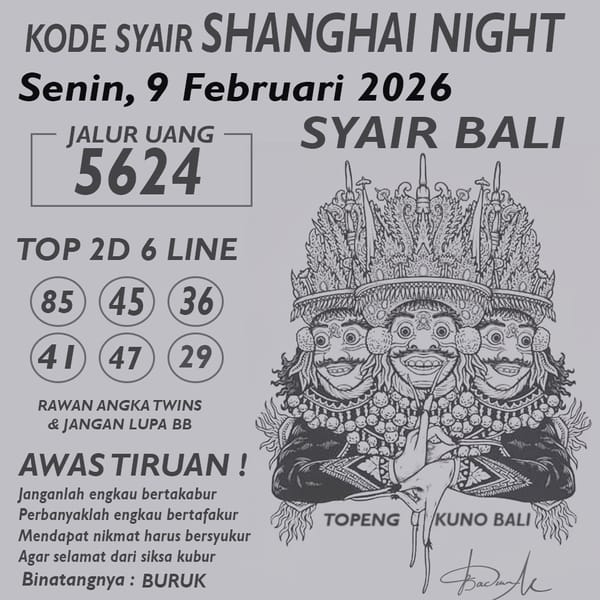 KODE SYAIR SHANGHAI NIGHT
Senin, 9 Februari 2026
JALUR UANG
5624
SYAIR BALI
TOP 2D 6 LINE
85 45 36
41 47 29
RAWAN ANGKA TWINS
& JANGAN LUPA BB
AWAS TIRUAN !
Janganlah engkau bertakabur
Perbanyaklah engkau bertafakur
Mendapat nikmat harus bersyukur
Agar selamat dari siksa kubur
Binatangnya : BURUK
TOPENG KUNO BALI